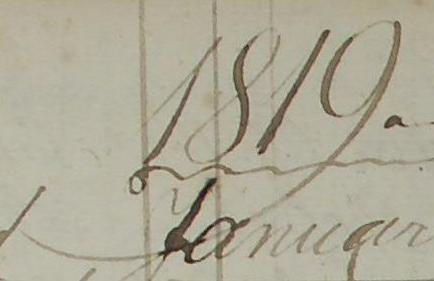 1819
Januar